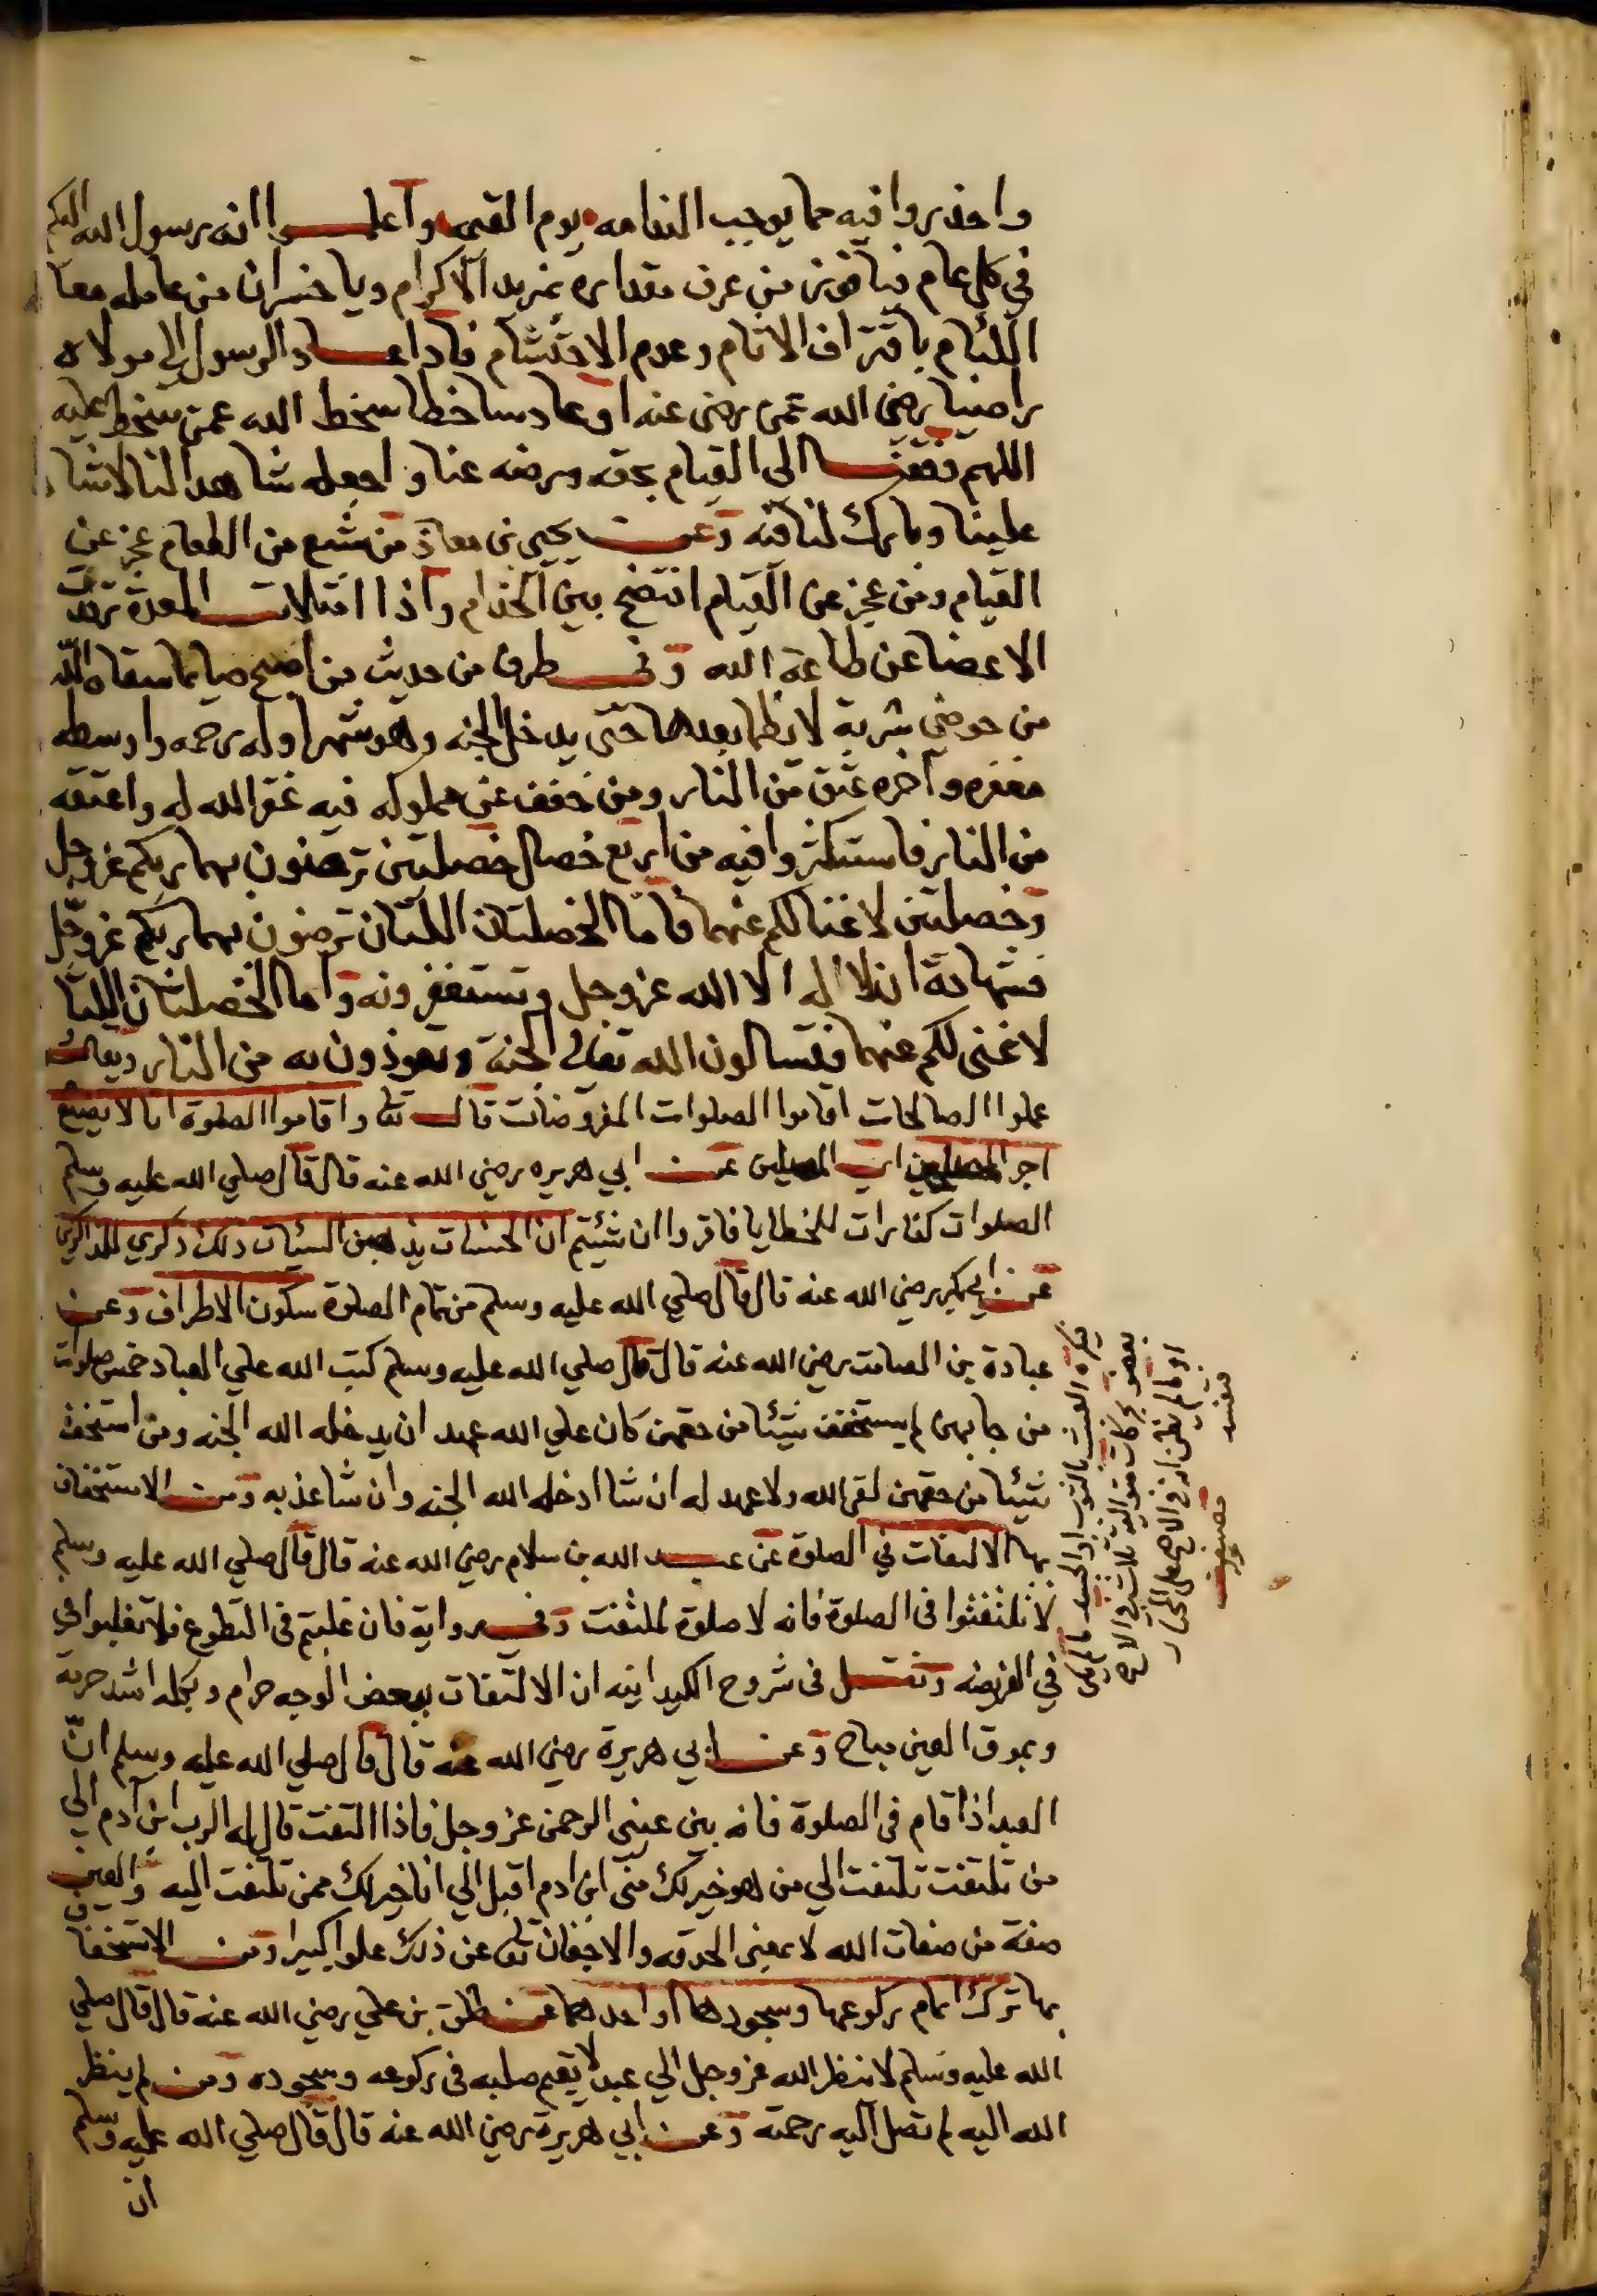 واحذروا فيه مما يوجب الندامه يوم القيمه واعلموا انه رسول الله اليكم
في كل عام فيا فوز من عرف مقداره بمزيد الاكرام ويا خسران من عامله معا
اللئام باقتراف الاثام وعدم الاحتشام فاذا عاد الرسول الي مولاه
راضيا رضي الله عمن رضي عنه او عاد ساخطا سخط الله عمن سخط عليه
اللهم وفقنا الى القيام بحقه ورضه عنا واجعله شاهدا لنا لا شاهدا
علينا وبارك لنا فيه وعن يحيي بن معاذ من شبع من الطعام عجز عن
القيام ومن عجز عن القيام افتضح بين الخدام واذا امتلات المعدة
الاعضا عن طاعة الله وفي طرف من حديث من اصبح صايما سقاه الله
من حوضي شربة لا يظما بعدها حتى يدخل الجنه وهو شهر اوله رحمه واوسطه
مغفره وآخره عتق من النار ومن خفف عن مملوكه فيه غفر الله له واعتقه
من النار فاستكثروا فيه من اربع خصال خصلتين ترضون بهما ربكم عز وجل
وخصلتين لا غنا لكم عنهما فاما الخصلتان اللتان ترضون بهما ربكم عز وجل
فشهادة ان لا اله الا الله عز وجل وتستغفرونه واما الخصلتان اللتا
لا غنى لكم عنهما فتسالون الله تعالى الجنة وتعوذون به من النار
عملوا الصالحات اقاموا الصلوات المفروضات قال تعا واقاموا الصلوة انا لا نضيع
اجر المصلحين اي المصلين عن ابي هريره رضي الله عنه قال قال صلي الله عليه وسلم
الصلوات كفارات للخطايا فاقروا ان شئيتم ان الحسنات يذهبن السيئات ذلك ذكري للذاكرين
عن ابي بكر رضي الله عنه قال قال صلي الله عليه وسلم من تمام الصلوة سكون الاطراف وعن
عبادة بن الصامت رضي الله عنه قال قال صلي الله عليه وسلم كتب الله علي العباد خمس صلوات
من جا بهن لم يستخفف شيئا من حقهن كان علي الله عهد ان يدخله الله الجنه ومن استخف
شيئا من حقهن لقي الله ولا عهد له ان شا ادخله الله الجنه وان شا عذبه ومن الاستخفاف
بها الالتفات في الصلوة عن عبد الله بن سلام رضي الله عنه قال قال صلي الله عليه وسلم
لا تلتفتوا في الصلوة فانه لا صلوة لملتفت وفي رواية فان غلبتم في التطوع فلا تغلبوا في
في الفريضه ونقل في شروح الكيدانيه ان الالتفات ببعض الوجه حرام وبكله اشد حرمة
وبموق العين مباح وعن ابي هريرة رضي الله عنه قال قال صلي الله عليه وسلم انّ
العبد اذا قام في الصلوة فانه بين عيني الرحمن عز وجل فاذا التفت قال له الرب ابن آدم الي
من تلتفت تلتفت الي من هو خير لك مني ابن ادم اقبل الي انا خير لك ممن تلتفت اليه والعين
صفة من صفات الله لا بمعني الحدقه والاجفان تعا عن ذلك علوا كبيرا ومن الاستخفاف
بها ترك اتمام ركوعها وسجودها او احدهما عن طلق بن علي رضي الله عنه قال قال صلي
الله عليه وسلم لا ينظر الله عز وجل الي عبد لا يقيم صلبه في ركوعه وسجوده ومن لم ينظر
الله اليه لم تصل اليه رحمته وعن ابي هريرة رضي الله عنه قال قال صلي الله عليه وسلم
ان
العبث بالثوب او الجسد ما لم يكن
بعض حركات متوالية ثلاث في الاصح